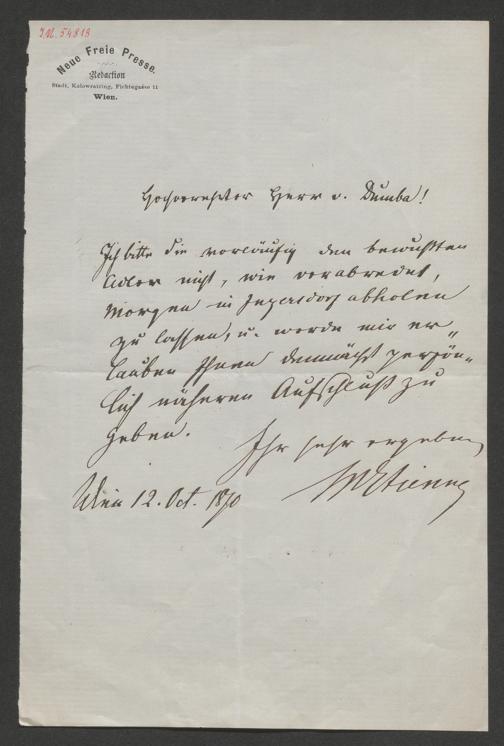 I.N. 54813
Neue Freie Presse.
Redaction
Stadt, Kolowratring, Fichtegasse 11
Wien.
Hochverehrter Herr v. Dumba!
Ich bitte Sie vorläufig den bewußten
Adler nicht, wie verabredet,
morgen in Inzersdorf abholen
zu lassen, u. werde mir er„
lauben Ihnen demnächst persön„
lich näheren Aufschluß zu
geben.
Ihr sehr ergebener
MEtienne
Wien 12. Oct. 1870